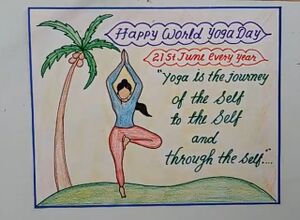 Happy World Yoga Day
21st June Every year
"Yoga is the journey
of the Self
to the Self
and
through the self....